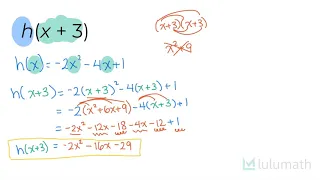 h(x + 3)
(x+3)(x+3)
x²+9
h(x) = -2x² -4x+1
h( x+3) = -2(x+3)² -4(x+3) +1
= -2(x²+6x+9) -4(x+3)+1
= -2x² -12x -18 -4x -12 +1
h(x+3) = -2x² -16x -29
lulumath